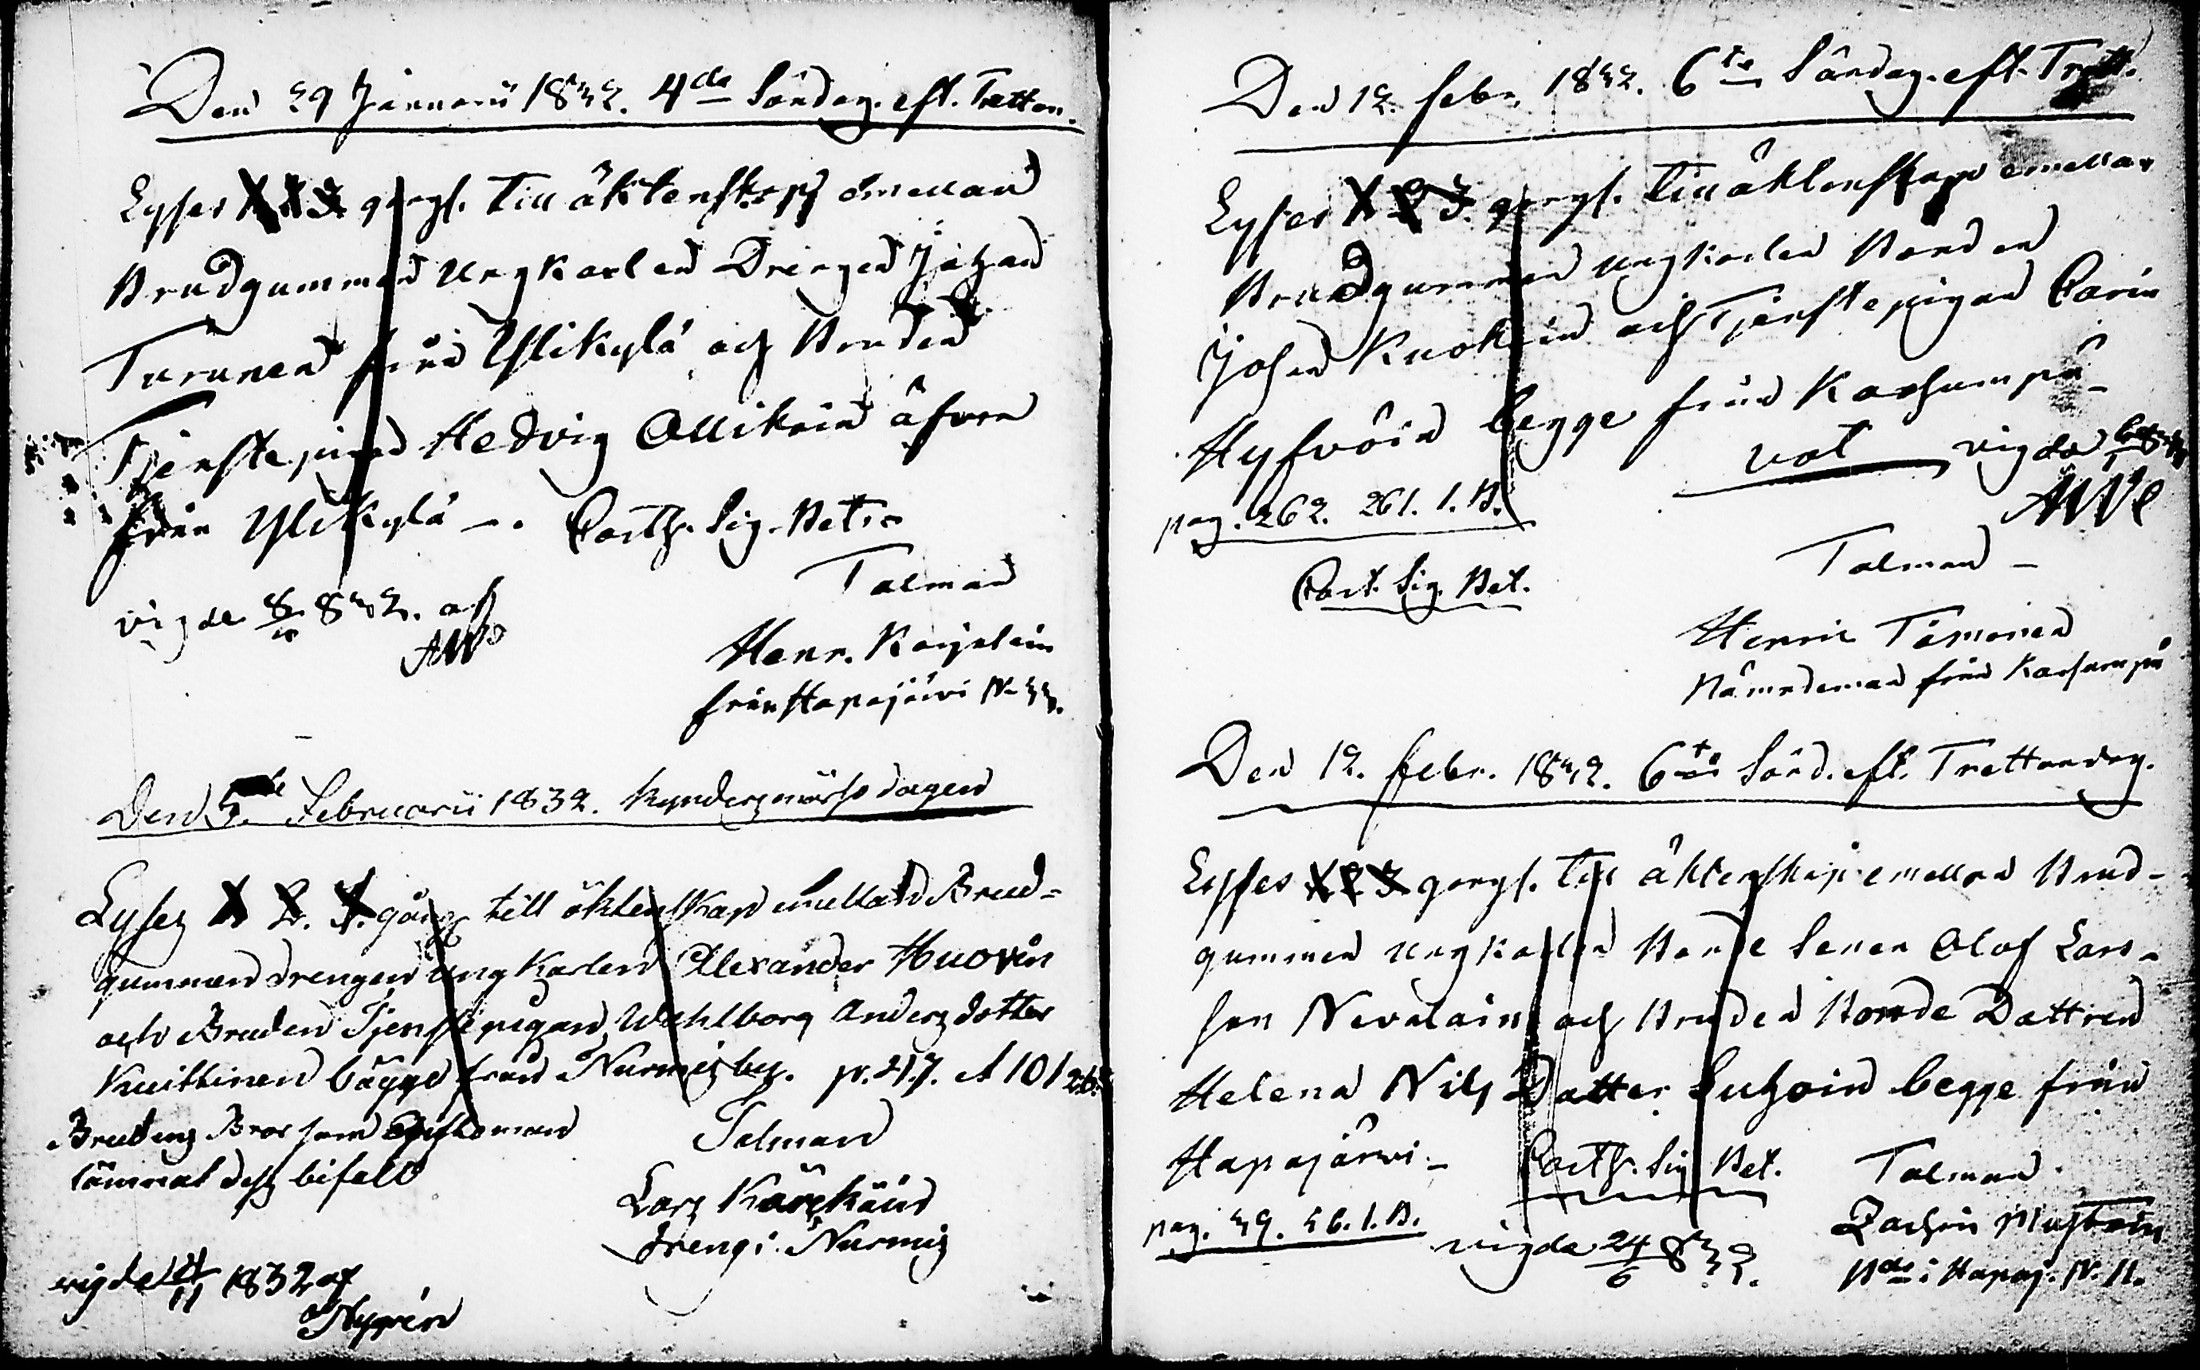 Den 29 Januarii 1832. 4de Söndag. eft. Tretton.
Lyses 1 2 3. gångl. till äktenskap emellan
Brudgummen Ungkarlen Drengen Johan
Turunen från Ylikylä och Bruden
Tjenstepigan Hedvig Ollikain äfven
från Ylikylä –. Caetß. Sig. Bet.
Talman
vigde 1832. af
AW
Henr. Karjalain
från Hapajärvi N. 33.
Den 5te Februarii 1832. Kyndersmässo dagen
Lyses 1 2. 3. gång till äktenskap emellan Brud-
gummen drengen ungkarlen Alexander Huovin
och Bruden Tjenstepigan Wahlborg Anders dotter
Kuittinen bägge från Nurmis by. p. 217. et 101
Brudens Bror som
lämnat dess bifall
Talman
Lars Kärkkäin
dreng i Nurmis
vigde 1832 af
Nygrén
Den 12. febr. 1832. 6te Söndag. eft. Trett.
Lyses 1 2 3. gångl. till äktenskap emellan
Brudgummen ungkarlen Bonden
Johan Kuok och Tjenstepigan Carin
Hyfvöin begge från Karhunpä-
vat vigde
AW
pag. 262. 261. 1. B.
Caet. Sig. Bet.
Talman –
Henric Timonen
Nämndeman från Karhunpä
Den 12. febr. 1832. 6te Sönd. eft. Trettondag.
Lyses 1 2 3 gångl. till äktenskap emellan Brud-
gummen ungkarlen Bonde Sonen Olof Lars-
son Nevalain och Bruden Bonde Dottren
Helena Nils Dotter Suhoin begge från
Hapajärvi – Caetß. Sig. Bet.
Talman
pag. 39. 36. 1. B.
vigde 24/6 832.
Zachris Mustoin
Bde i Hapaj. N. 11.